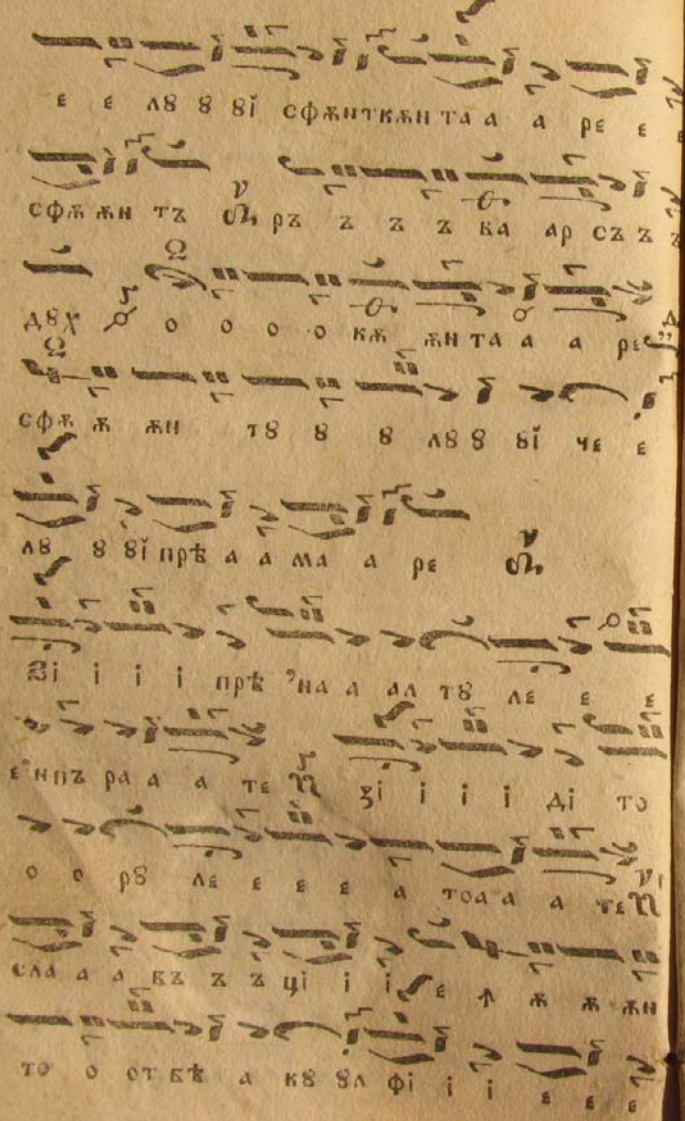 ε ε лꙋ ꙋ ꙋї сфѫнткѫн та а а ре ε ε
сфѫ ѫн тъ ръ ъ ъ ъ ка ар съ ъ ъ
дꙋх о о о о кѫ ѫн та а а ре
сфѫ ѫ ѫн тꙋ ꙋ ꙋ лꙋ ꙋ ꙋї че ε
лꙋ ꙋ ꙋї прѣ а а ма а ре
Зі і і і прѣ ’на а ал тꙋ ле ε ε
ε ’нпъ ра а а те ꙁі і і і ді то
о о рꙋ ле ε ε ε а тоа а а те
сла а а въ ъ ъ ці і і ε ꙟ ѫ ѫ ѫн
то о от бѣ а кꙋ ꙋл фі і і ε ε ε